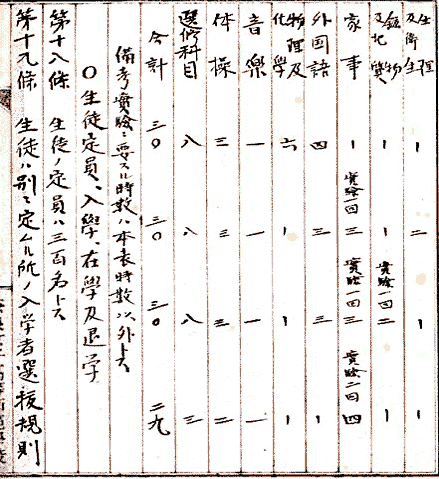 生理及衛生 | 二 | |
鉱物及地質 | | 実験一回 二 |
家事 | 実験一回 三 実験一回 三 実験二回 四
外国語 四 三 三 |
物理及化學 六 | | |
音樂 一 一 一 一
体操 三 三 三 二
選修科目 八 八 八 三
合計 三〇 三〇 三〇 二九
備考 實驗ニ要スル時数ハ本表時数以外トス
〇生徒定員、入學、在學及退学
第十八條 生徒ノ定員ハ三百名トス
第十九條 生徒ハ別ニ定ムル所ノ入学者選抜規則